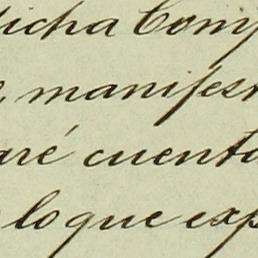 dicha Comp
, manifest
aré cuenta
lo que exp